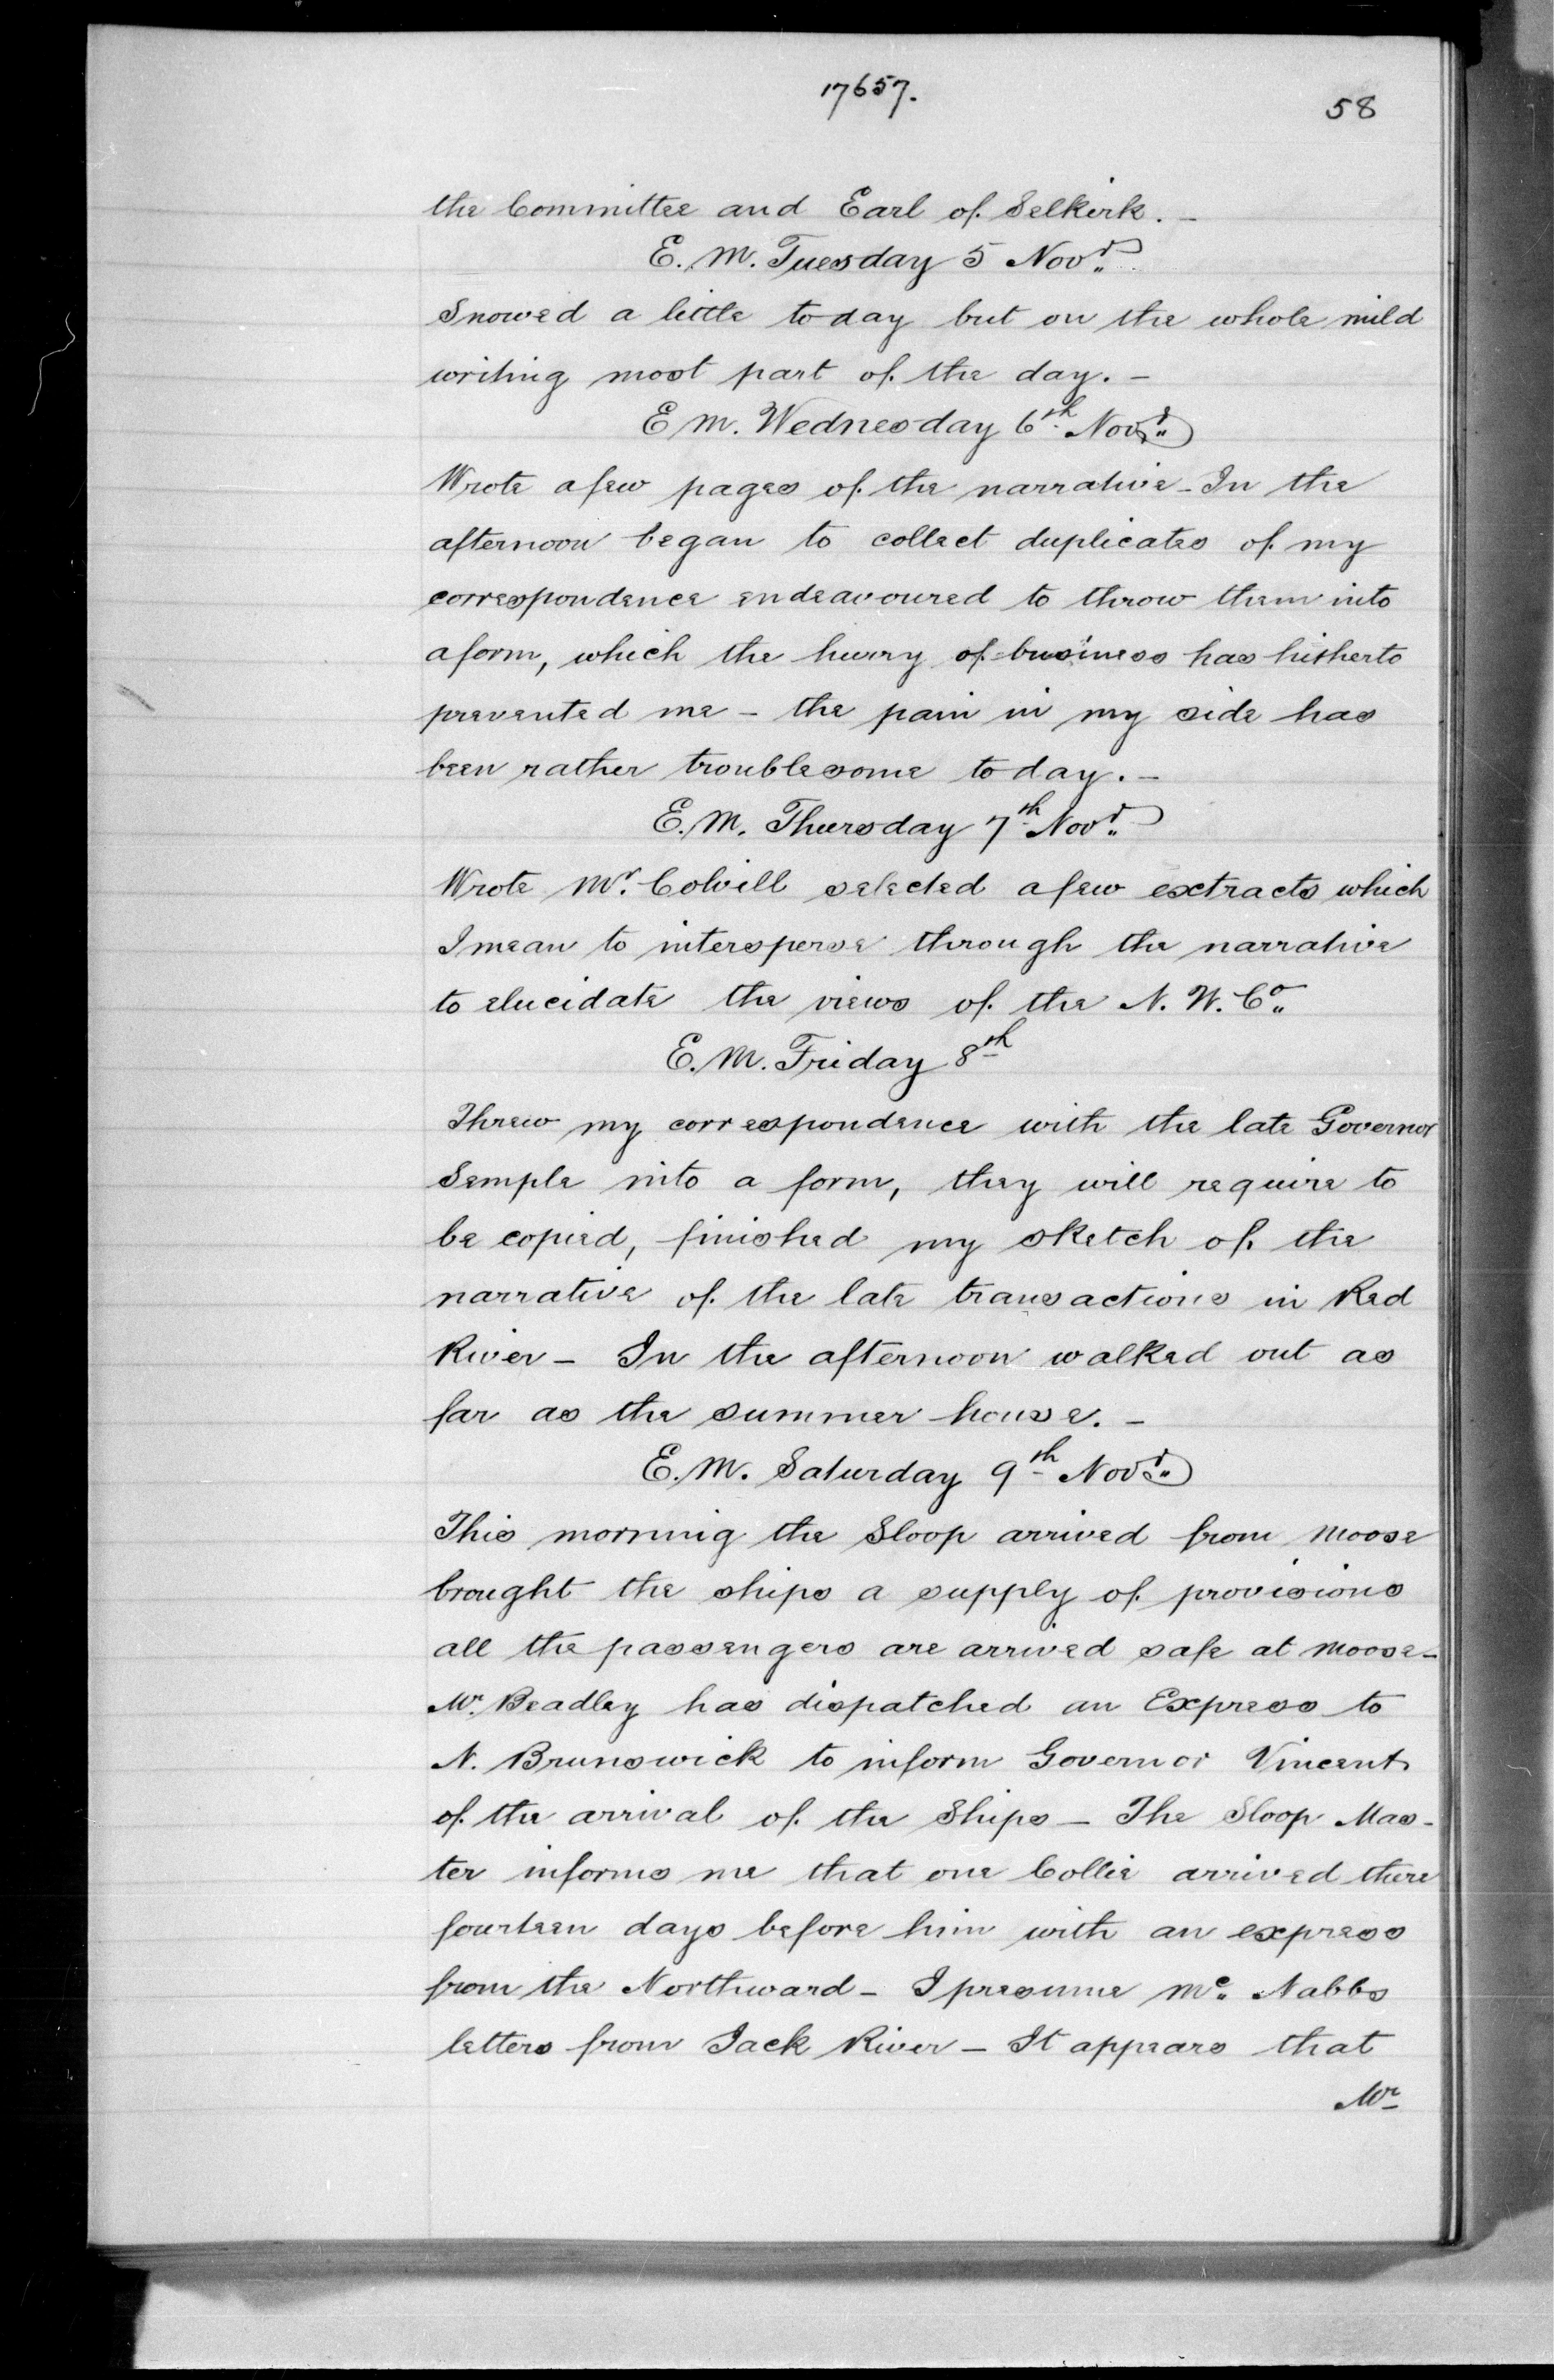 17657.
58
the Committee and Earl of Selkirk. -
E. M. Tuesday 5 Novr.
Snowed a little to day but on the whole mild
writing most part of the day. -
E M. Wednesday 6th Novr.
Wrote a few pages of the narrative - In the
afternoon began to collect duplicates of my
correspondence endeavoured to throw them into
a form, which the hurry of business has hitherto
prevented me - the pain in my side has
been rather troublesome to day. -
E. M. Thursday 7th Novr.
Wrote Mr. Colvill selected a few extracts which
I mean to intersperse through the narrative
to elucidate the views of the N. W. Co.
E. M. Friday 8th
Threw my correspondence with the late Governor
Semple into a form, they will require to
be copied, finished my sketch of the
narrative of the late transactions in Red
River - In the afternoon walked out as
far as the summer house. -
E. M. Saturday 9th Novr.
This morning the Sloop arrived from Moose
brought the ships a supply of provisions
all the passengers are arrived safe at Moose -
Mr. Beadley has dispatched an Express to
N. Brunswick to inform Governor Vincent
of the arrival of the Ships - The Sloop Mas-
ter informs me that one Collie arrived there
fourteen days before him with an express
from the Northward - I presume Mc. Nabbs
letters from Jack River - It appears that
Mr